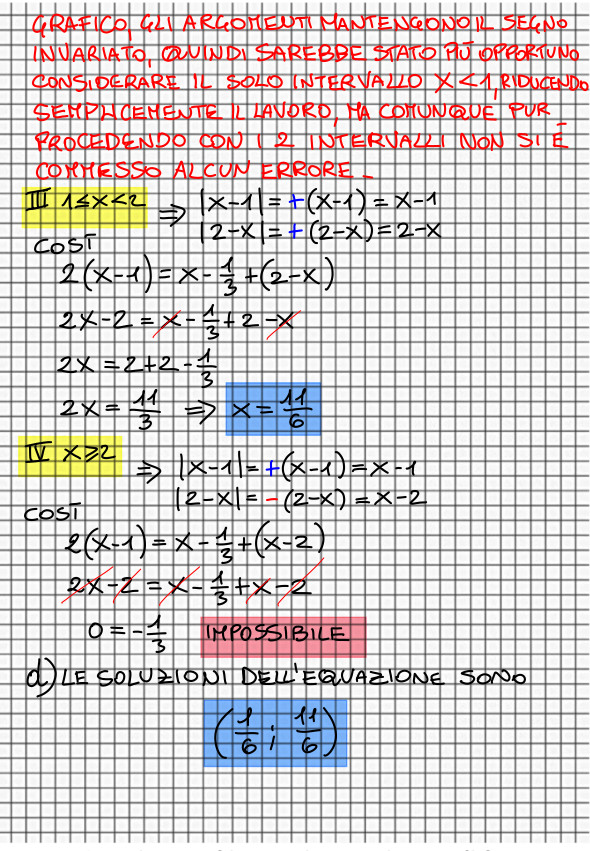 GRAFICO, GLI ARGOMENTI MANTENGONO IL SEGNO
INVARIATO, QUINDI SAREBBE STATO PIÙ OPPORTUNO
CONSIDERARE IL SOLO INTERVALLO X<1, RIDUCENDO
SEMPLICEMENTE IL LAVORO, MA COMUNQUE PUR
PROCEDENDO CON I 2 INTERVALLI NON SI È
COMMESSO ALCUN ERRORE.
III 1≤X<2 ⇒ |X-1|=+(X-1)=X-1
|2-X|=+(2-X)=2-X
COSÌ
2(X-1)=X-1/3+(2-X)
2X-2=X-1/3+2-X
2X=2+2-1/3
2X=11/3 ⇒ X=11/6
IV X≥2 ⇒ |X-1|=+(X-1)=X-1
|2-X|=-(2-X)=X-2
COSÌ
2(X-1)=X-1/3+(X-2)
2X-2=X-1/3+X-2
0=-1/3 IMPOSSIBILE
d) LE SOLUZIONI DELL'EQUAZIONE SONO
(1/6; 11/6)